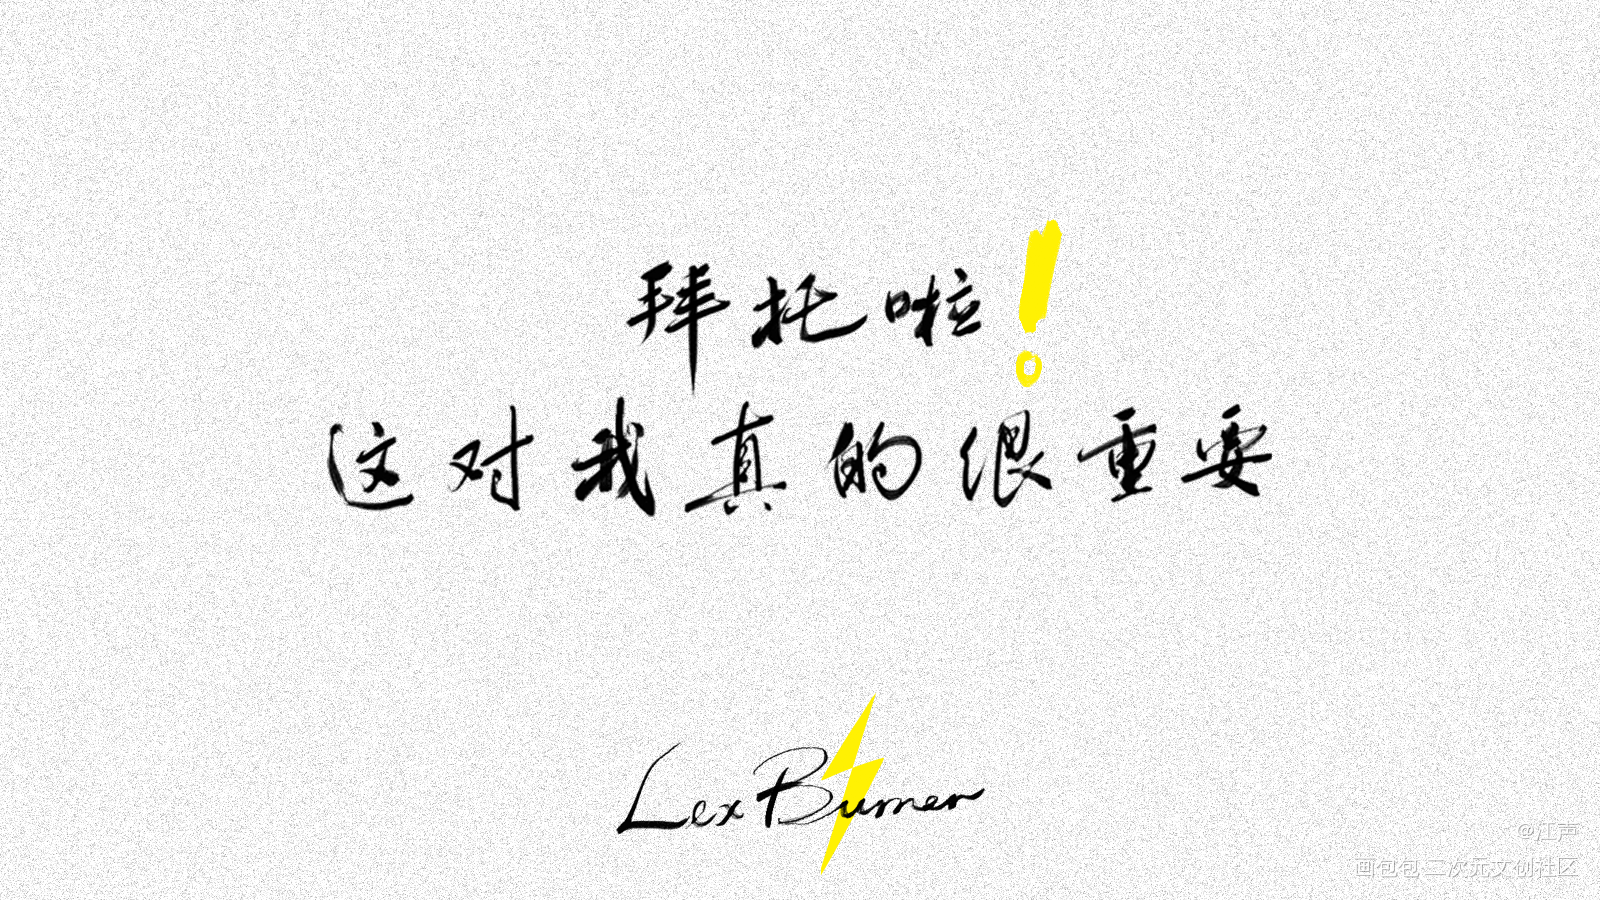 拜托啦！
这对我真的很重要
LexBurner
@江声
画包包·二次元文创社区